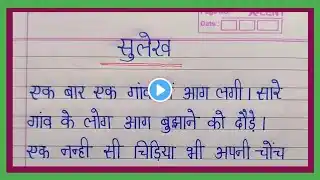 ACCENT
Date:
सुलेख
एक बार एक गांव आग लगी। सारे
गांव के लोग आग बुझाने को दौड़े।
एक नन्ही सी चिड़िया भी अपनी चोंच